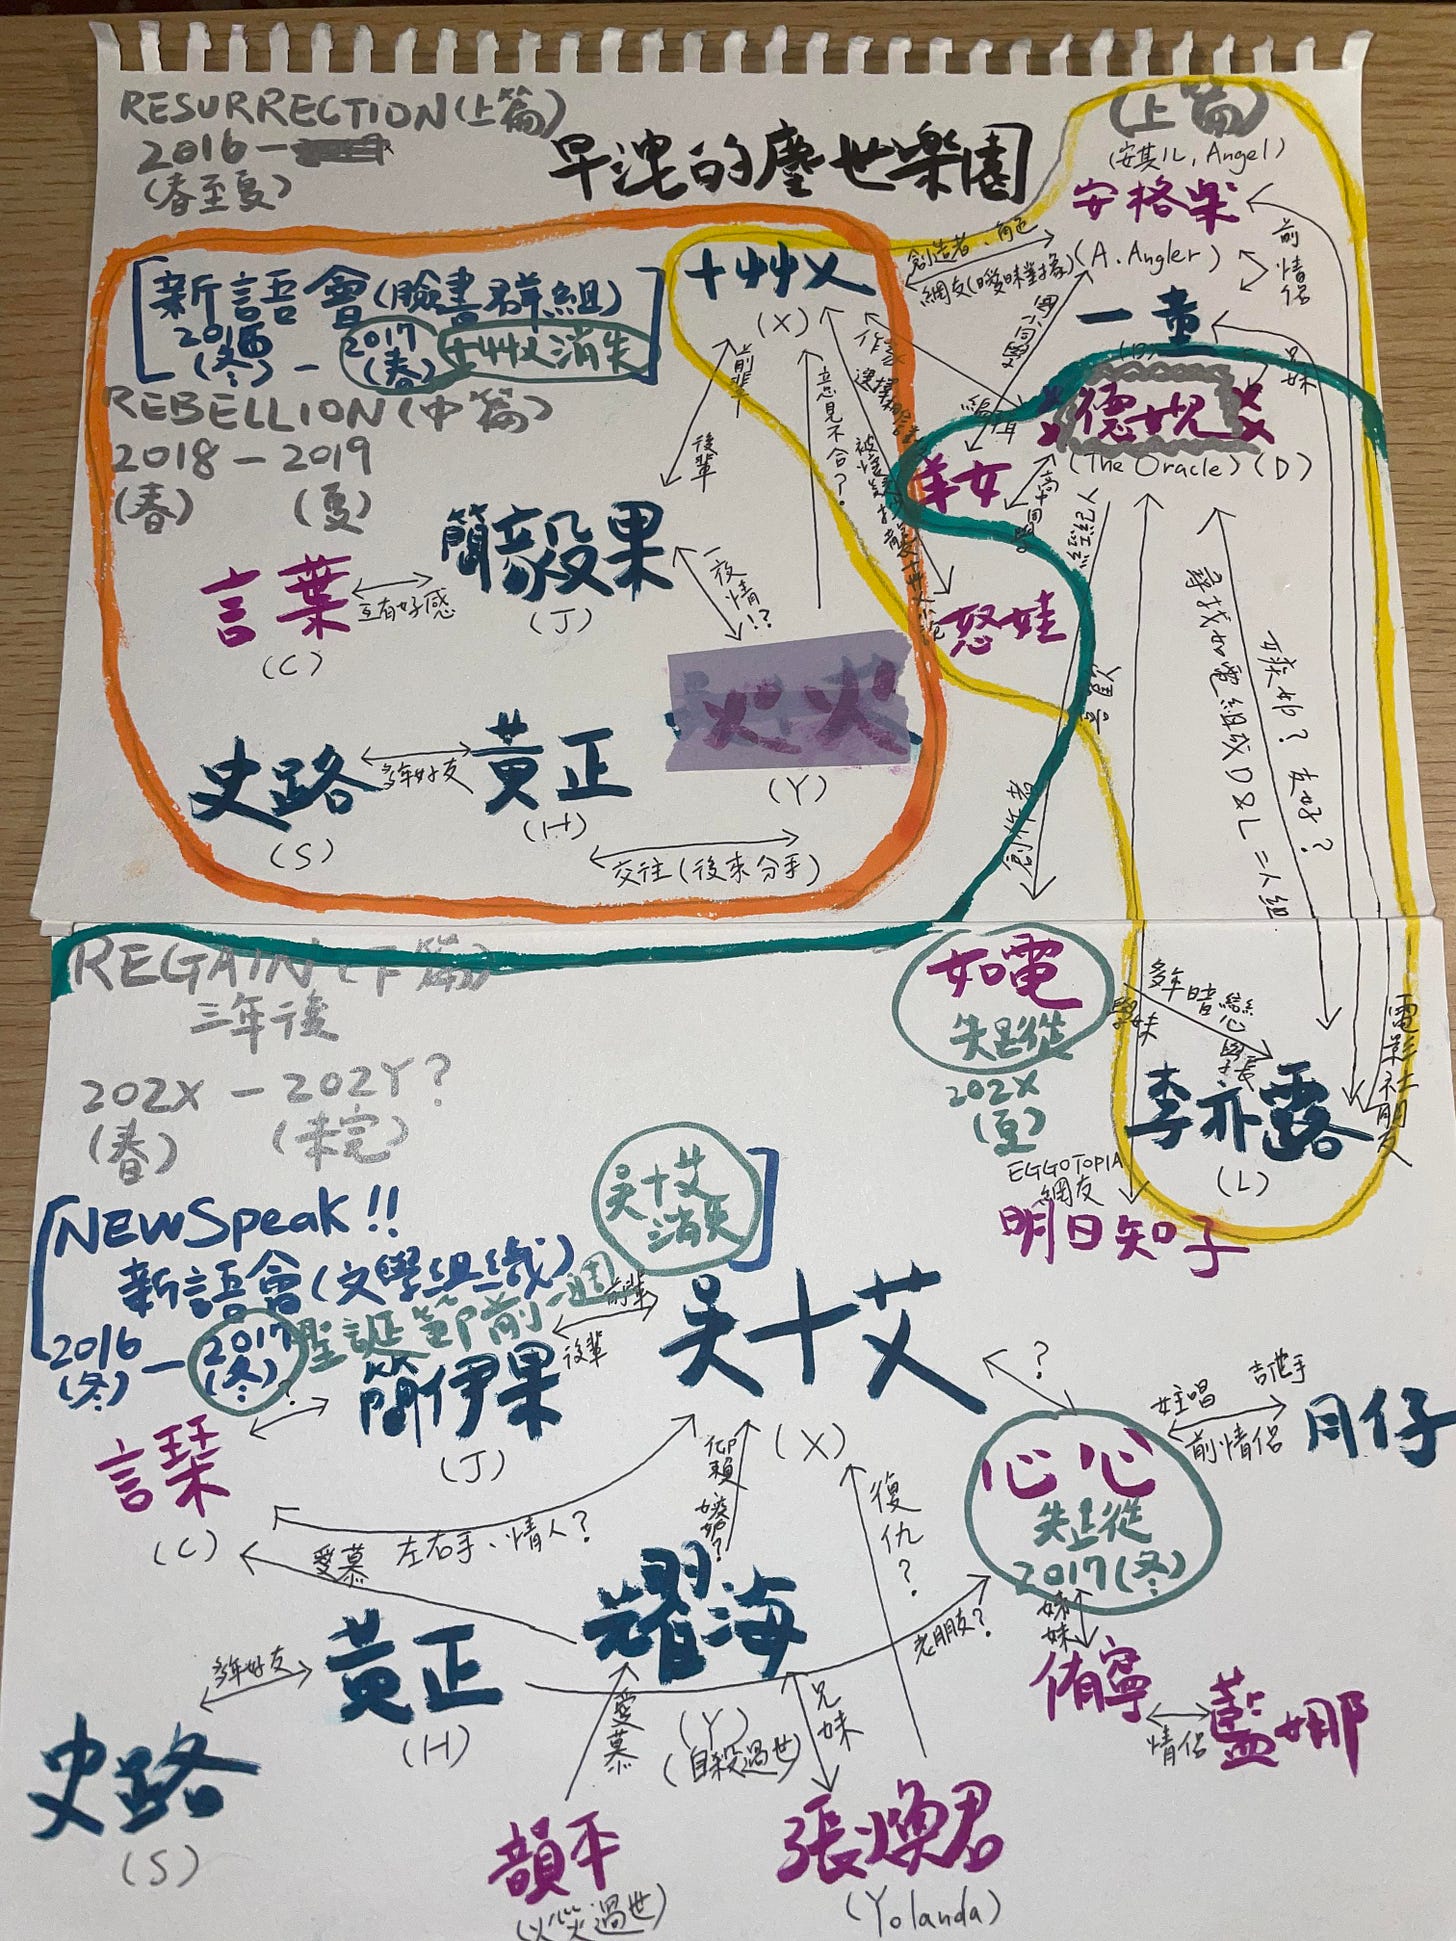 RESURRECTION(上篇)
2016—
(春至夏)
早洩的塵世樂園
(上篇)
(安其儿, Angel)
安格桌
(A. Angler)
前情侶
創造者、角色
網友(曖昧對象)
十艸乂
(X)
一童
兄妹
[新語會(臉書群組)
(冬) — 2017
(春) 十艸乂消失]
REBELLION(中篇)
2018 — 2019
(春) (夏)
前輩
後輩
意見不合?
作家
編輯
羊女
德妣
(The Oracle) (D)
高中同學
經紀人
簡毅果
(J)
言葉
(C)
互有好感
一夜情!?
怒娃
尋找如電組成D&L二人組
友好?
火火
(Y)
史路
(S)
多年好友
黃正
(H)
交往(後來分手)
創作者
REGAIN(下篇)
三年後
202X — 202Y?
(春) (未完)
如電
失蹤
202X
(夏)
多年暗戀
學長
學妹
電影社朋友
李亦露
(L)
EGGOTOPIA
網友
明日知子
[NEWSpeak!!
新語會(文學組織)
2016 — 2017 聖誕節前一週
(冬) (冬)
吴十艾
消失]
前輩
後輩
吴十艾
(X)
簡伊果
(J)
?
言琹
(C)
?
女主唱
吉他手
前情侶
月仔
心心
失蹤
2017(冬)
左右手、情人?
愛慕
仰賴
嫉妒?
復仇?
老朋友?
妹妹
耀海
(Y)
(自殺過世)
黃正
(H)
多年好友
史路
(S)
愛慕
兄妹
侑寧
情侶
藍娜
韻平
(火災過世)
張煥君
(Yolanda)